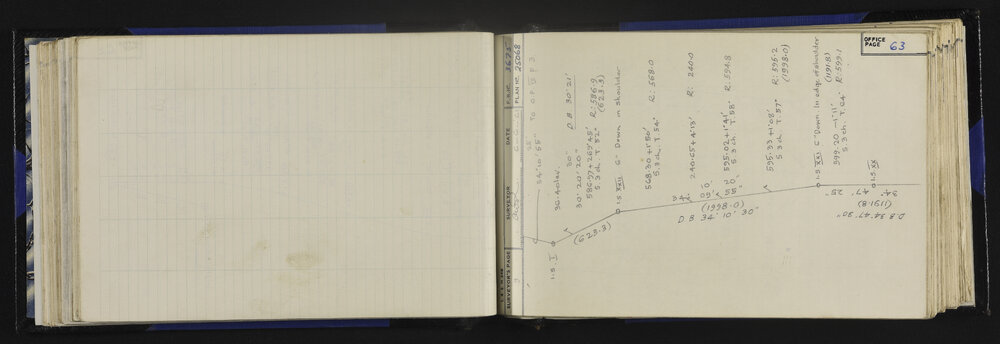 OFFICE PAGE 63
F.B. No. 3675
PLAN No. 25068
DATE
SURVEYOR
SURVEYOR'S PAGE 3
25"
54° 10' 55" TO O P
30.40 lev.
30"
30° 20' 20"
D.B. 30° 21'
586.97 + 269°45'
5.3 ch T. 52°
R: 586.9
(623.3)
I.S. I
(623.3)
I.S. XXII 6" Down in shoulder
568.30 + 1°50'
5.3 ch. T. 54°
R: 568.0
240.65 + 4°13'
R: 240.0
595.02 + 1°41'
5.3 ch T. 58°
R: 594.8
595.33 + 1°08'
5.3 ch T. 57°
R: 595.2
(1998.0)
34° 09' 55"
10' 20"
(1998.0)
D.B. 34° 10' 30"
I.S. XXI 6" Down in edge of shoulder
(1191.8)
599.20 - 1°11'
5.3 ch. T. 64°
R: 599.1
I.S. XX
34° 47' 25"
(1191.8)
D.B. 34.47.30"